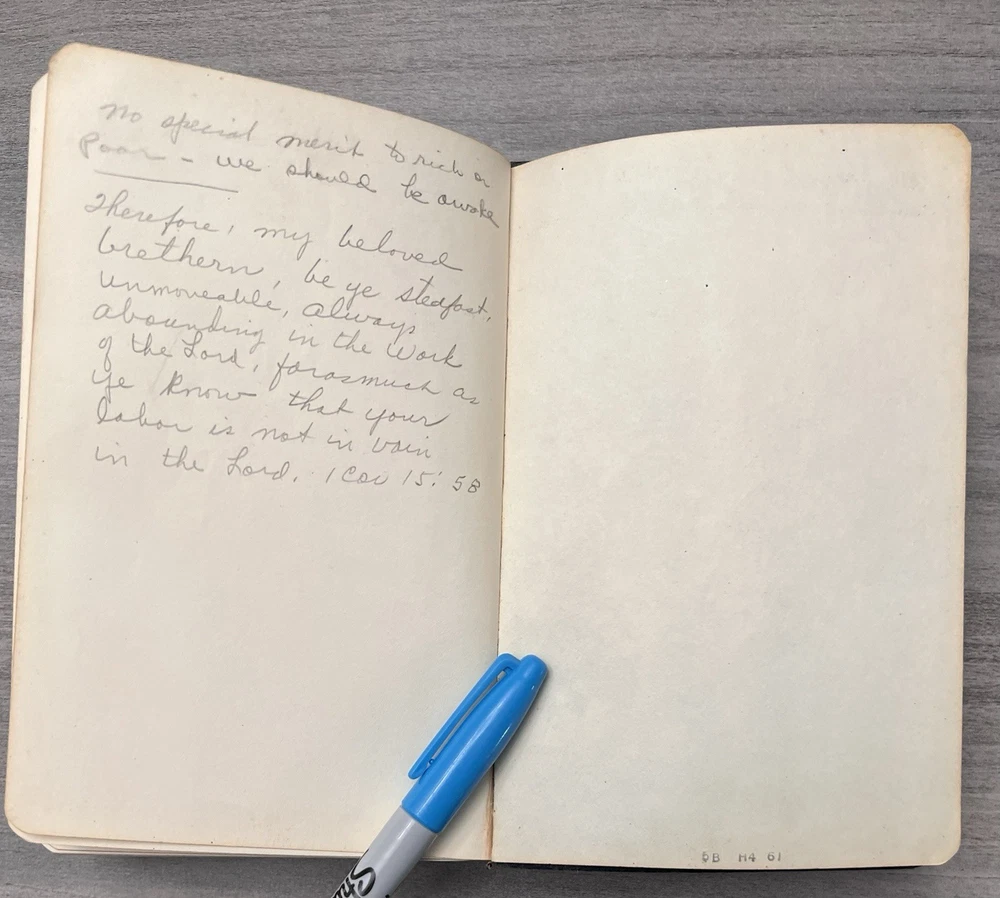 No special merit to rich or
Poor - we should be awake
Therefore, my beloved
brethern, be ye stedfast,
unmoveable, always
abounding in the Work
of the Lord, forasmuch as
ye know that your
labor is not in vain
in the Lord. 1 Cor 15: 58
5B H4 61